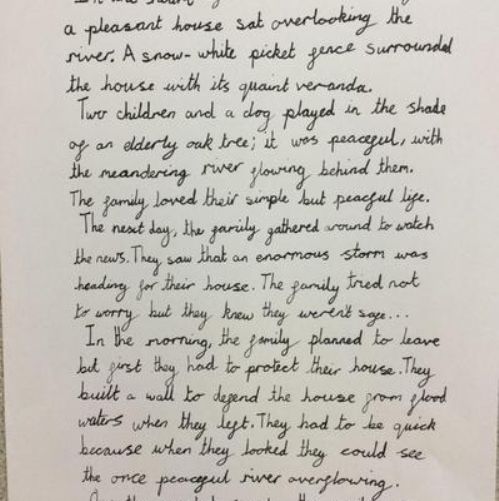 a pleasant house sat overlooking the
river. A snow-white picket fence surrounded
the house with its quaint veranda.
Two children and a dog played in the shade
of an elderly oak tree; it was peaceful, with
the meandering river flowing behind them.
The family loved their simple but peaceful life.
The next day, the family gathered around to watch
the news. They saw that an enormous storm was
heading for their house. The family tried not
to worry but they knew they weren't safe...
In the morning, the family planned to leave
but first they had to protect their house. They
built a wall to defend the house from flood
waters when they left. They had to be quick
because when they looked they could see
the once peaceful river overflowing.